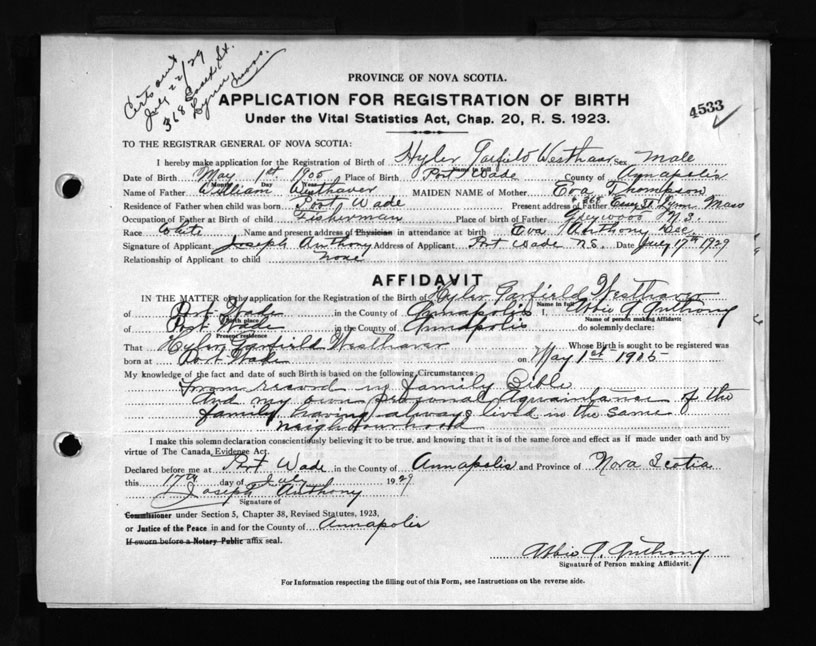 Certs sent
July 22/29
368 Essex St.
Lynn Mass.
PROVINCE OF NOVA SCOTIA.
APPLICATION FOR REGISTRATION OF BIRTH
4533
Under the Vital Statistics Act, Chap. 20, R. S. 1923.
TO THE REGISTRAR GENERAL OF NOVA SCOTIA:
I hereby make application for the Registration of Birth of Hyler Garfield Westhaver Sex Male
Date of Birth May 1st 1905 Place of Birth Port Wade County of Annapolis
Month Day Year
Name of Father William Westhaver MAIDEN NAME of Mother Eva Thompson
Residence of Father when child was born Port Wade Present address of Father 368 Essex St Lynn Mass
Occupation of Father at Birth of child Fisherman Place of birth of Father Greywood N.S.
Race White Name and present address of Physician in attendance at birth Eva Anthony Dec.
Signature of Applicant Joseph Anthony Address of Applicant Port Wade N.S. Date July 17th 1929
Relationship of Applicant to child none
AFFIDAVIT
IN THE MATTER of the application for the Registration of the Birth of Hyler Garfield Westhaver
Name in full
of Port Wade in the County of Annapolis I, Abbie A Anthony
Birth place Name of person making Affidavit
of Port Wade in the County of Annapolis do solemnly declare:
Present residence
That Hyler Garfield Westhaver Whose Birth is sought to be registered was
born at Port Wade on May 1st 1905
My knowledge of the fact and date of such Birth is based on the following Circumstances:
From record in family Bible
And my own personal aquaintance of the
family having always lived in the same
neighbourhood
I make this solemn declaration conscientiously believing it to be true, and knowing that it is of the same force and effect as if made under oath and by
virtue of The Canada Evidence Act.
Declared before me at Port Wade in the County of Annapolis and Province of Nova Scotia
this 17th day of July 1929
Joseph Anthony
Signature of
Commissioner under Section 5, Chapter 38, Revised Statutes, 1923,
or Justice of the Peace in and for the County of Annapolis
If sworn before a Notary Public affix seal.
Abbie A. Anthony
Signature of Person making Affidavit.
For Information respecting the filling out of this Form, see Instructions on the reverse side.